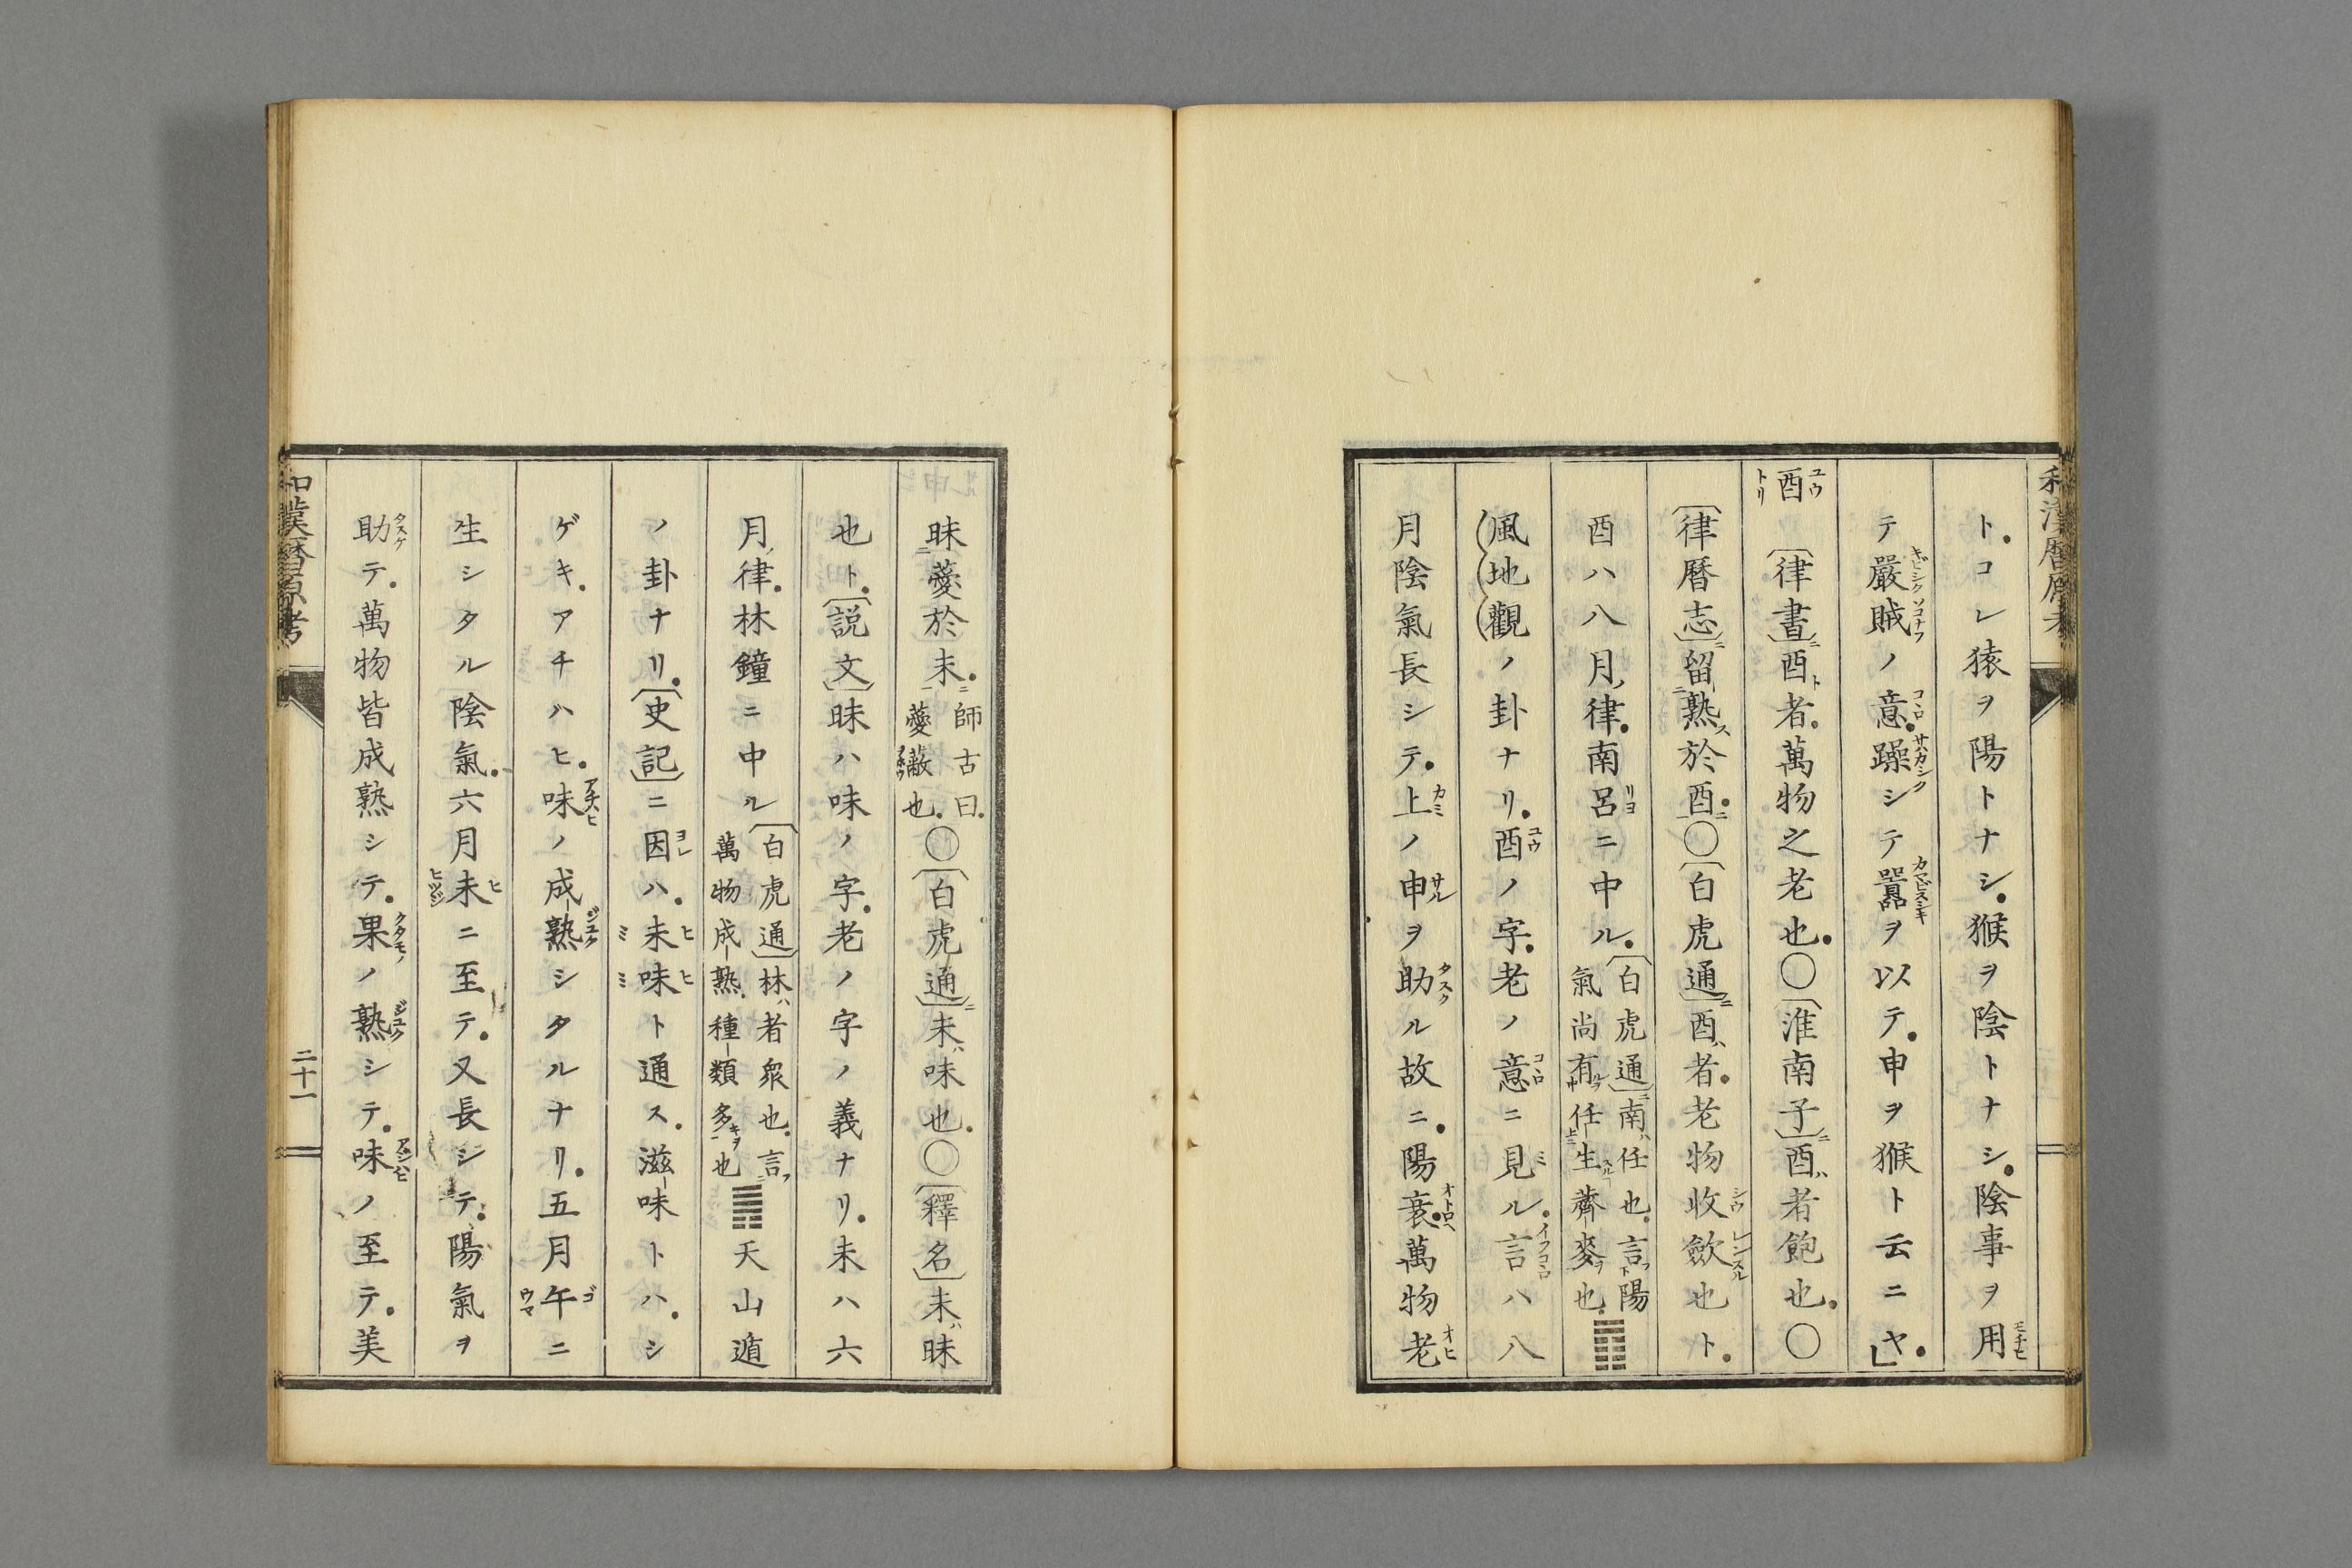 ト。コレ猿ヲ陽トナシ。猴ヲ陰トナシ。陰事ヲ用
テ嚴賊ノ意。躁シテ囂ヲ以テ。申ヲ猴ト云ニヤ。
酉 〔律書〕酉者。萬物之老也。〇〔淮南子〕酉者飽也。〇
〔律曆志〕留熟於酉。〇〔白虎通〕酉者。老物收斂也ト。
酉ハ八月律。南呂ニ中ル。〔白虎通〕南任也。言陽
氣尚有任生薺麥也。䷓
風地觀ノ卦ナリ。酉ノ字。老ノ意ニ見ル。言ハ八
月陰氣長シテ。上ノ申ヲ助ル故ニ。陽衰。萬物老
和漢曆原考
昧薆於未。師古曰。
薆蔽也。〇〔白虎通〕未味也。〇〔釋名〕未昧
也ト。〔説文〕昧ハ味ノ字。老ノ字ノ義ナリ。未ハ六
月律。林鐘ニ中ル〔白虎通〕林者衆也。言
萬物成熟。種類多也䷠天山遁
ノ卦ナリ。〔史記〕ニ因ハ。未味ト通ス。滋味トハ。シ
ゲキ。アチハヒ。味ノ成熟シタルナリ。五月午ニ
生シタル陰氣。六月未ニ至テ。又長シテ。陽氣ヲ
助テ。萬物皆成熟シテ。果ノ熟シテ。味ノ至テ。美
和漢曆原考
二十一